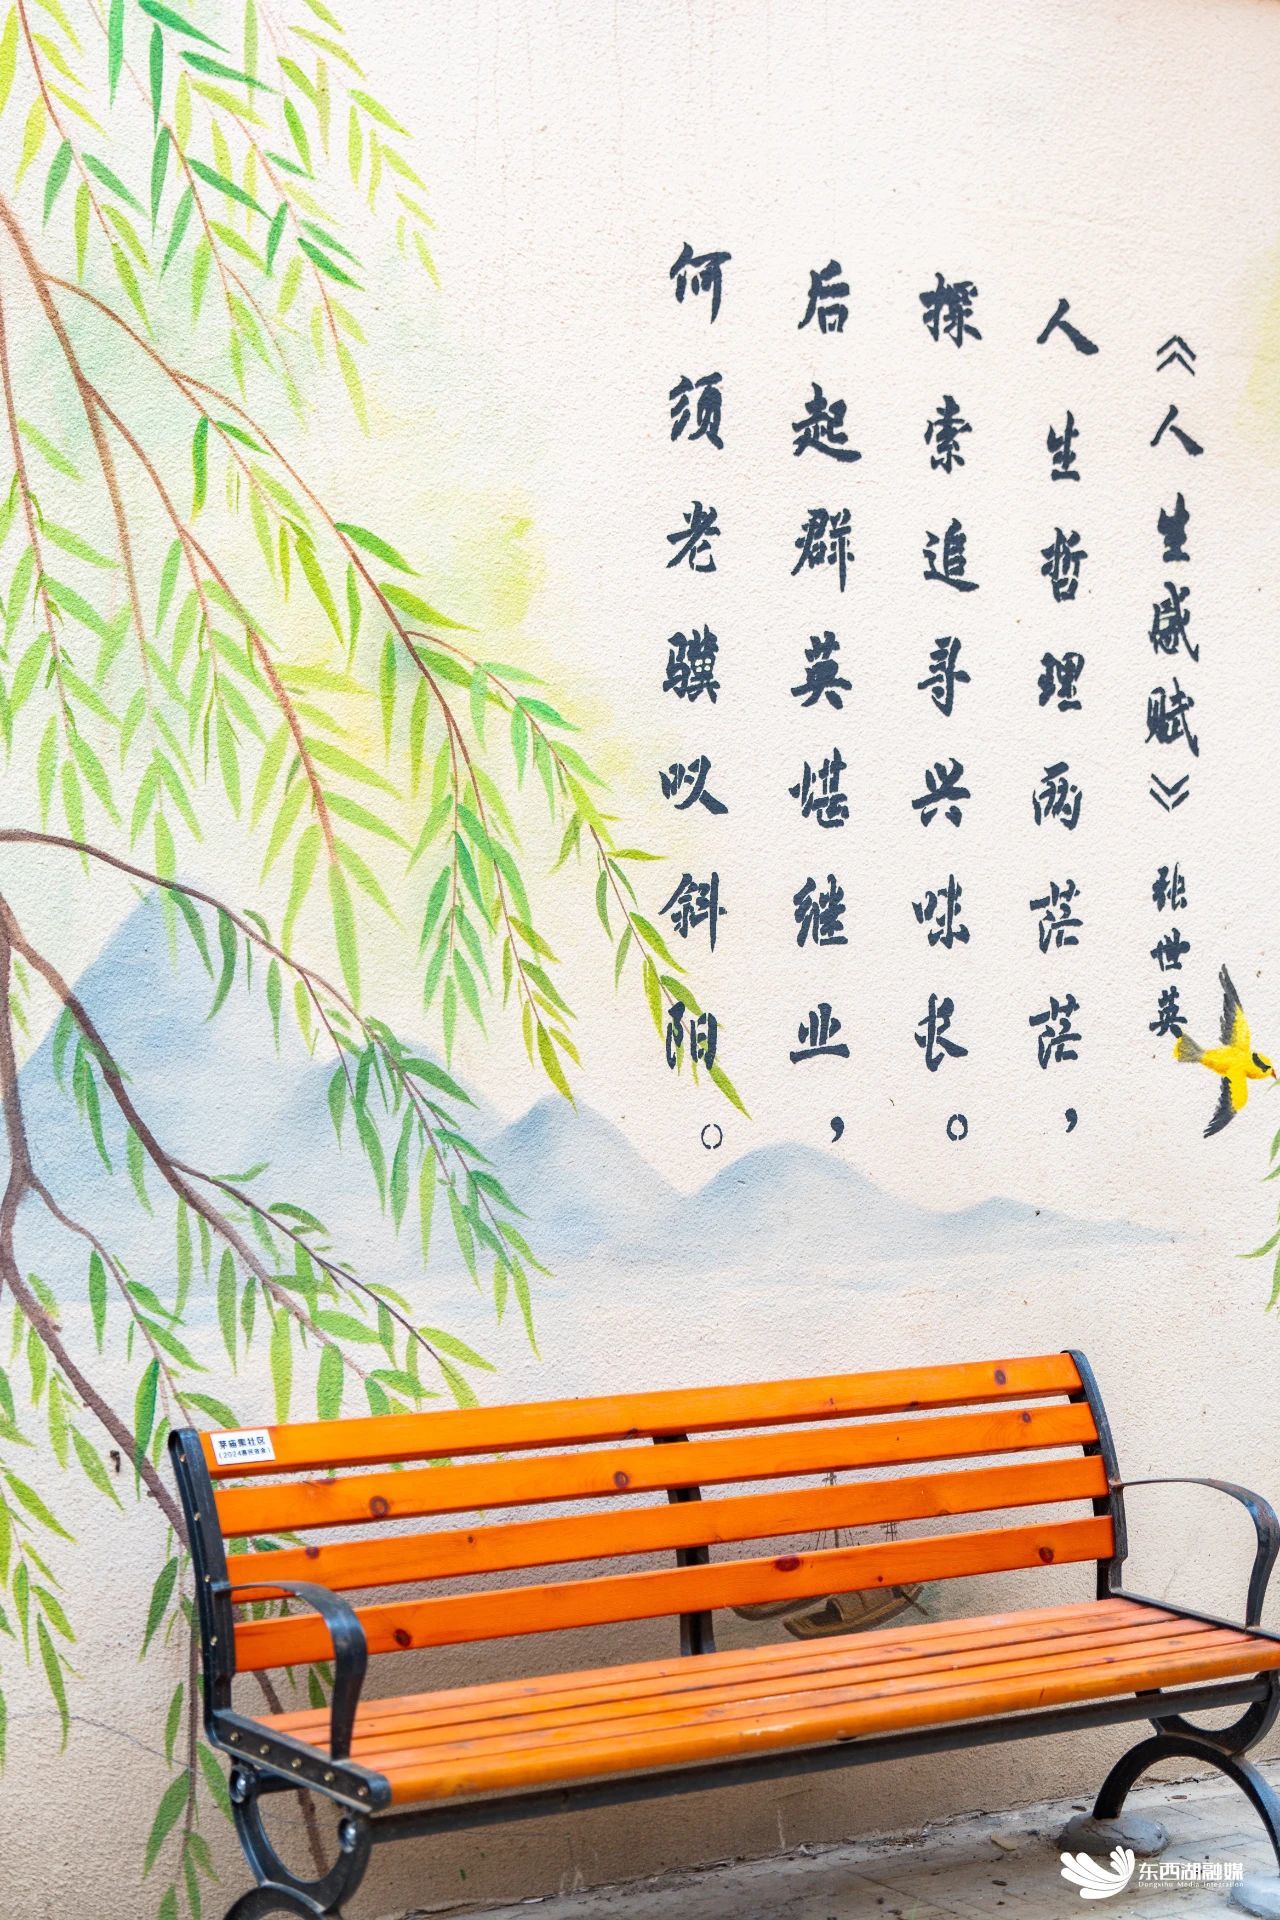 《人生感赋》 张世英
人生哲理两茫茫，
探索追寻兴味长。
后起群英堪继业，
何须老骥叹斜阳。
茅庙集社区
(2024惠民资金)
东西湖融媒
Dongxihu Media Integration